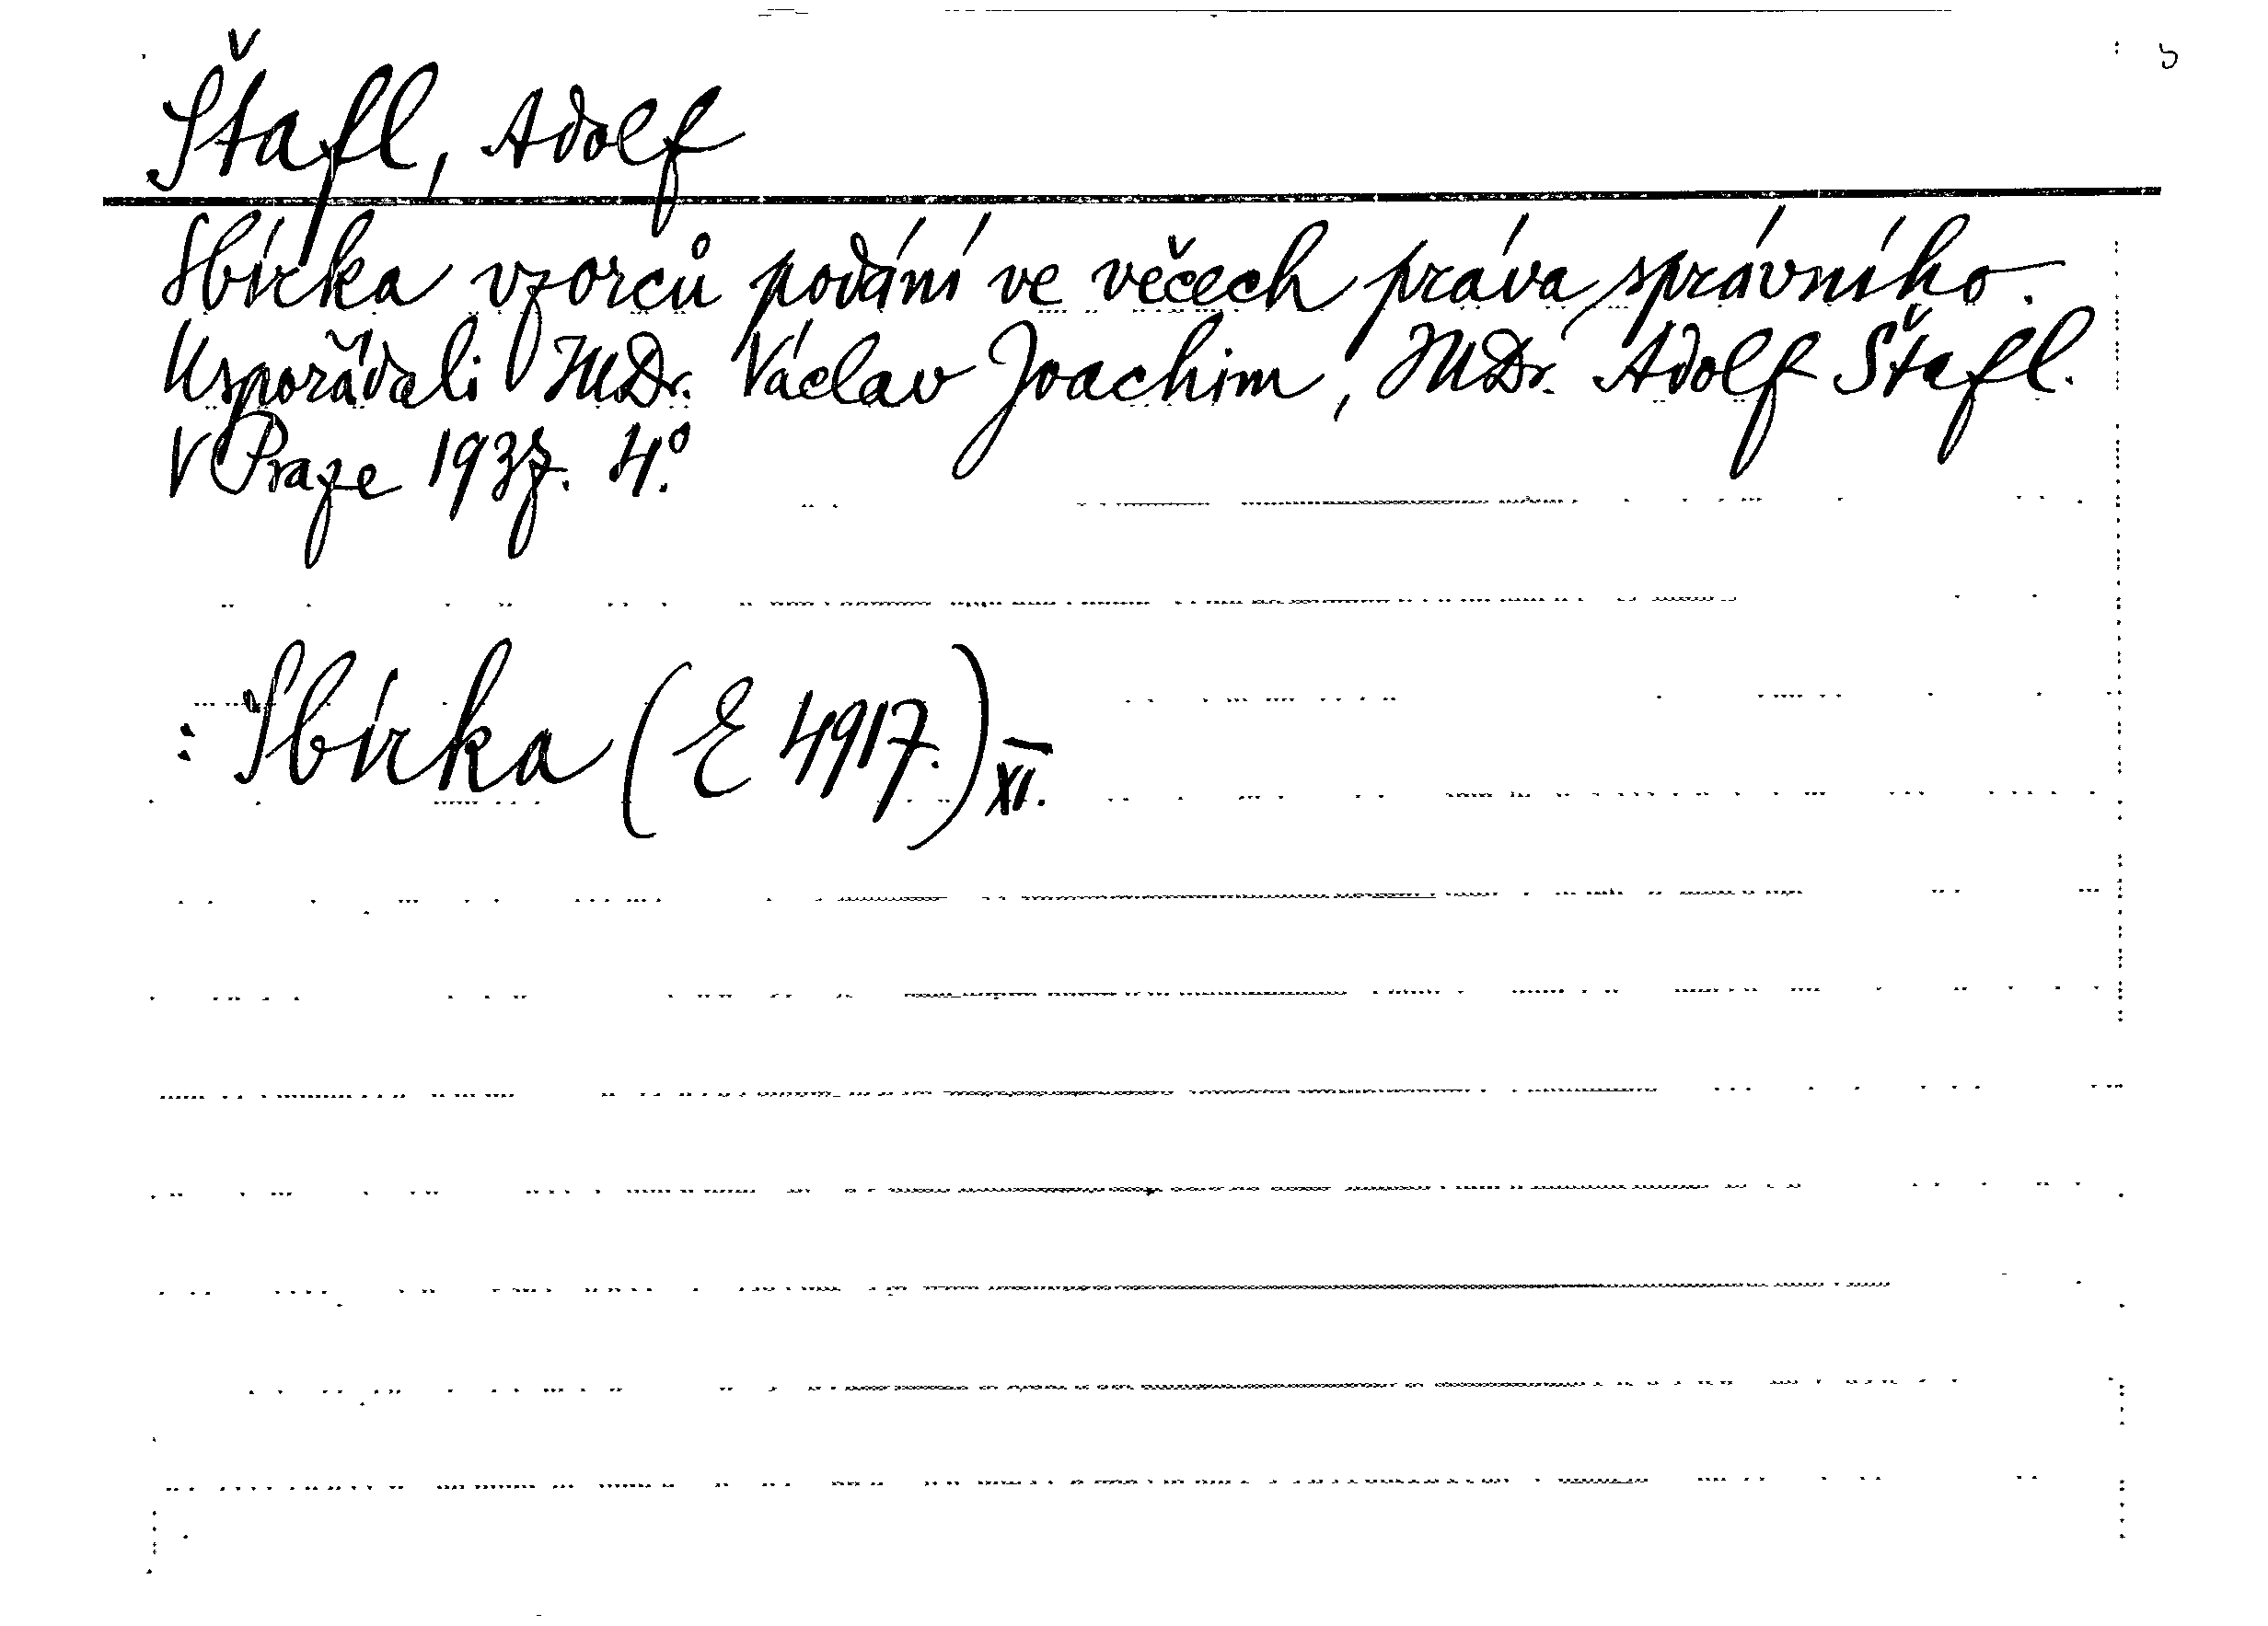 Štafl, Adolf
Sbírka vzorců podání ve věcech práva správního.
Uspořádali JUDr. Václav Joachim, JUDr. Adolf Štafl.
V Praze 1937. 4º.
: Sbírka (E 4917.) XI.